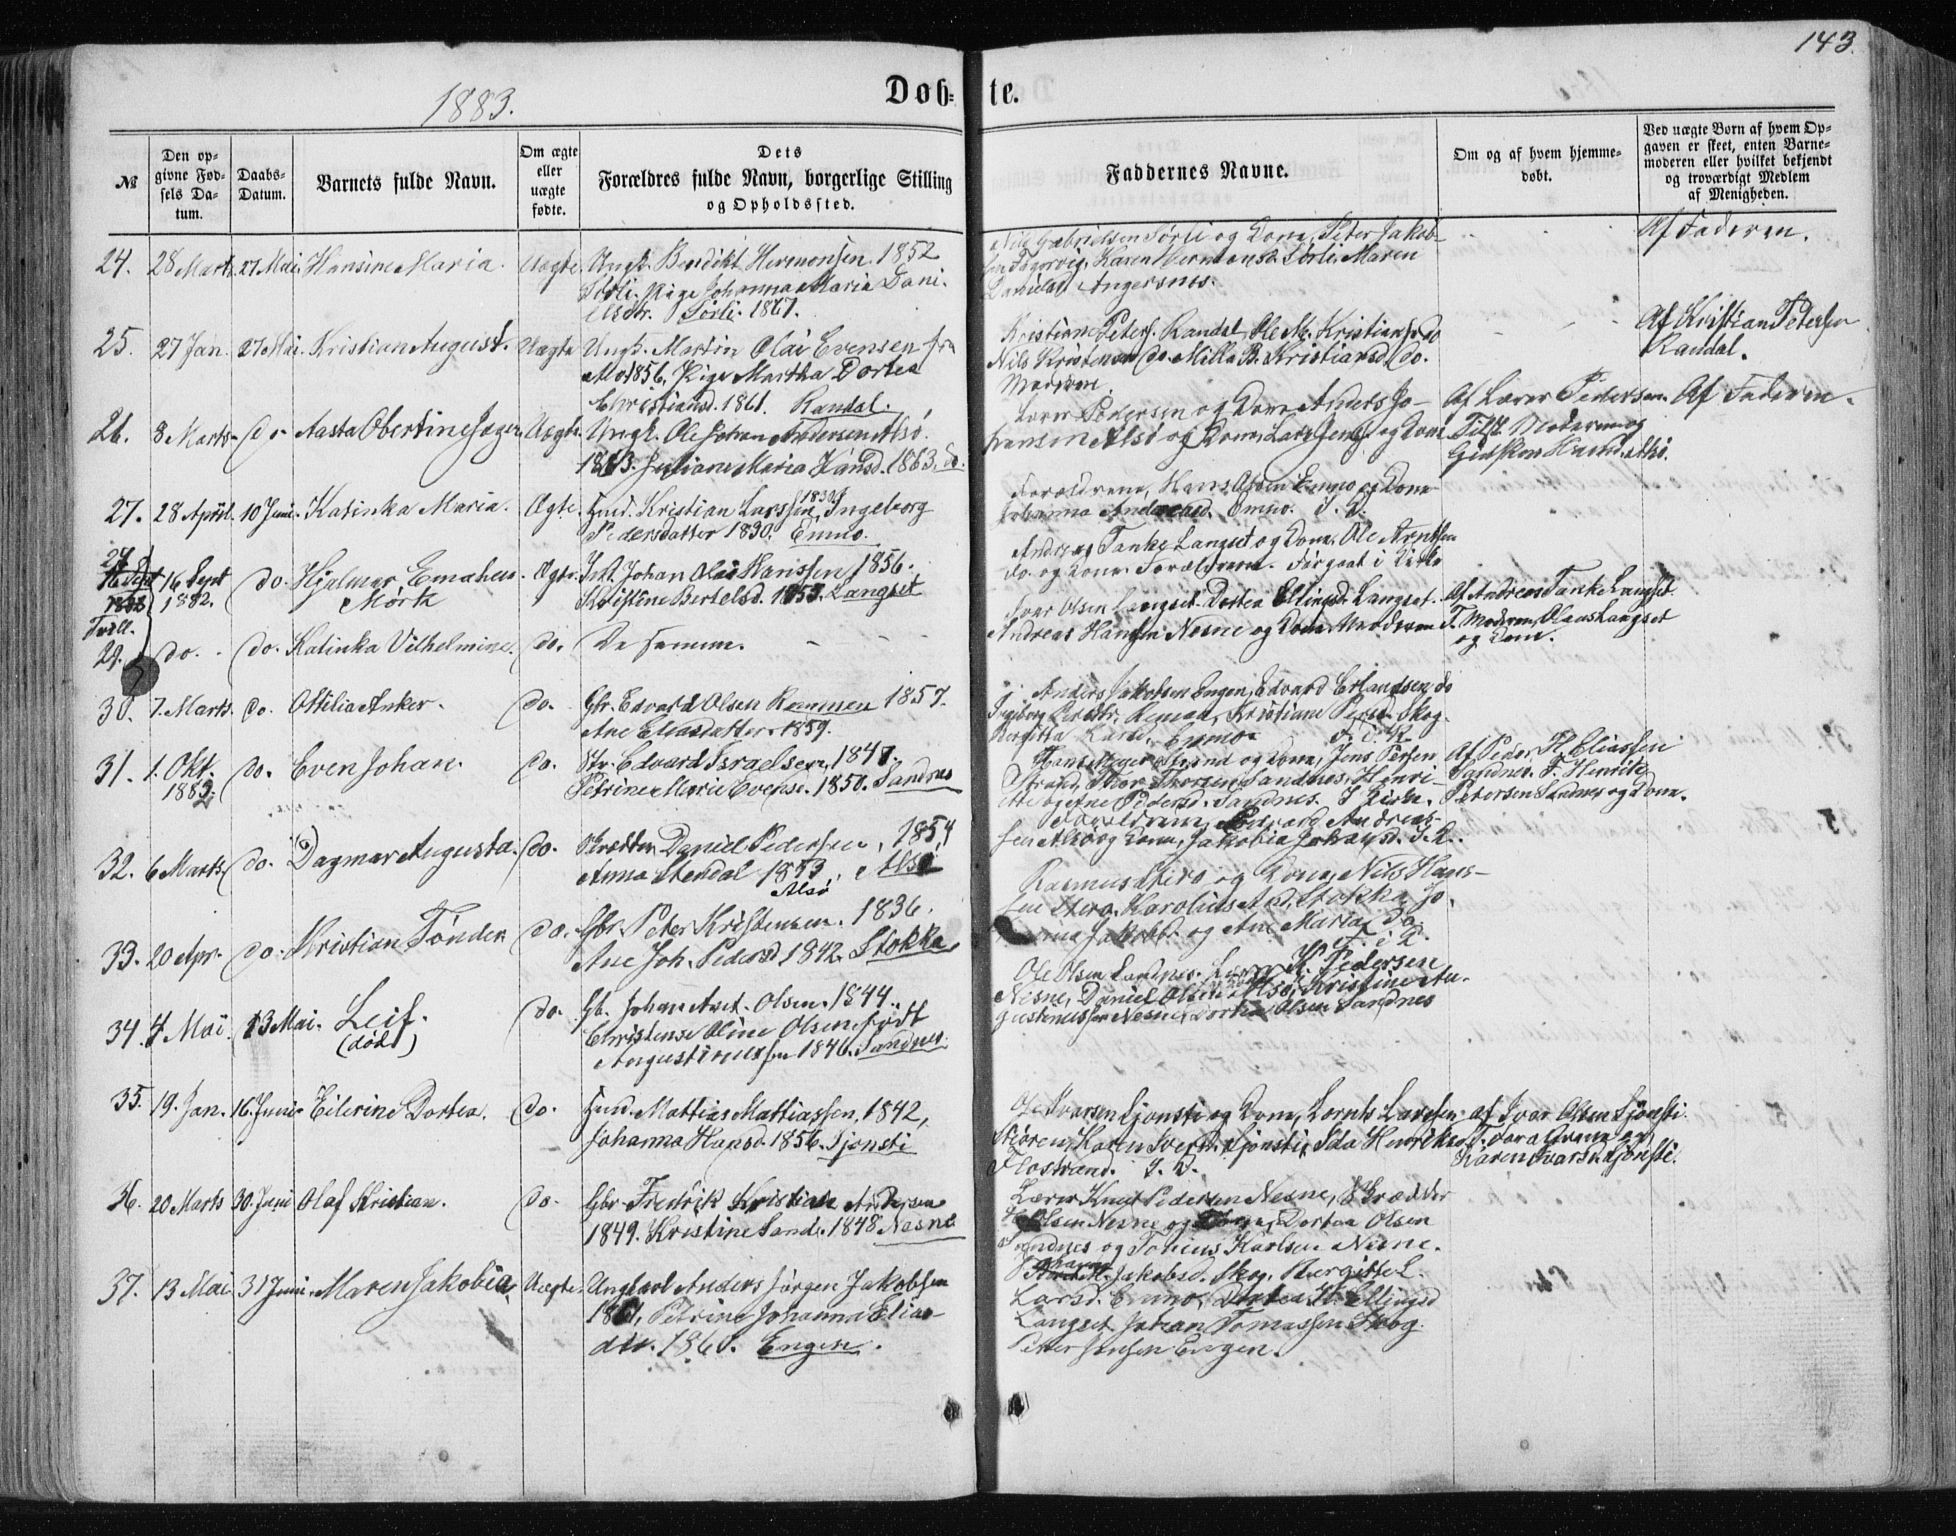 143.
1883.
Døb= te.
№
Den op-
givne Fød-
sels Da-
tum.
Daabs-
Datum.
Barnets fulde Navn.
Om ægte
eller
uægte
fødte.
Dets
Forældres fulde Navn, borgerlige Stilling
og Opholdssted.
Faddernes Navne.
Om og af hvem hjemme-
døbt.
Ved uægte Børn af hvem Op-
gaven er skeet, enten Barne-
moderen eller hvilket bekjendt
og troværdigt Medlem
af Menigheden.
24. 28 Marts 27 Mai. Hansine Maria. Uægte. Ungk. Bendikt Hermonsen. 1852
Sörli. Pige Johanna Maria Dani-
elsdtr. Sörli. 1867.
Gabrielsen Sörli og Kone, Peter Jakob-
Karen Sörli. Maren
Angersnes.
Af Faderen.
25. 27 Jan. 27 Mai. Kristian August. Uægte Ungk. Martin Olai Evensen fra
Mo 1856. Pige Martha Dortea
Christiansd. 1861. Randal.
Kristian Peters. Randal, Ole M. Kristians. do
Nils Kristensen do. Milla B. Kristiansd. do.
Moderen.
Af Kristian Petersen
Randal.
26. 8 Marts do Aasta Obertine Uægte. Ungk. Ole Johan Andersen Alsö.
1863. Juliane Maria Hansd. 1863. do.
Lærer Pedersen og Kone, Anders Jo-
hansen Alsö og Kone, Lars Jens. og Kone
Af Lærer Pedersen.
Tilst. Moderen og
Af Faderen.
27. 28 April. 10 Juni. Katinka Maria. Ægte. Husm. Kristian Larssen 1830, Ingeborg
Pedersdatter 1830. Emno.
Forældrene, Hans Olsen Emno og Kone
Johanna Andreasd. Emno. I. K.
28
16 Sept
1882 16 Sept
1882. do. Hjalmar Emahus
Mörk Ægte. Inst. Johan Olai Hanssen 1856.
Kristine Bertelsd. 1853. Langset
Andreas Tanke Langset og Kone, Ole Arntsen
do. og Kone. Forældrene. Forgaat i Kirke
Tvill.
29. do. do. Katinka Vilhelmine. do. De samme.
Ivar Olsen Langset. Dortea Ellingsd. Langset.
Andreas Hansen Nesne og Kone. Moderen
Af Andreas Tanke Langset
T. Modren, Olaus Langset
og Kone.
30. 7. Marts. do. Ottilia Anker. do. Gbr. Edvard Olsen Remmen 1857.
Ane Eliasdatter. 1859.
Anders Jakobsen Engen, Edvard Erlandsen do
Ingeborg Persdtr. Remen, Kristiane Persd. Skog.
Bergitta Larsd. Emno. F. i. K
31. 1. Okt.
1882. do. Even Johan. do. Str. Edvard Israelsen, 1847.
Petrine Marie Evensd. 1850. Sandnes
Hans Meyer Strand og Kone, Jens Persen
Strand, Thor Thorsen Sandnes, Henri-
ette og Ane Pedersd. Sandnes. I Kirke.
Af Peder H. Eliassen
Sandnes. T. Henrik
Petersen Sandnes og Kone.
32. 6 Marts. do. Dagmar Augusta. do. Skrædder Daniel Pedersen, 1854
Anna Stendal 1853, Alsö
Alsö
Forældrene, Edvard Andreas-
sen Alsö og Kone, Jakobia Johansd. I. K.
33. 20 Apr. do. Kristian Tönder do. Gbr. Peter Kristensen. 1836.
Ane Joh. Pedersd 1842. Stokka
Rasmus og Kone, Nils Hans-
sen Karolius And. Stokka, Jo-
Jakobs. og Ane Maria do.
F. i K.
34. 4 Mai. 13 Mai. Leif.
(död) do. Gb. Johan Arnt. Olsen. 1844.
Christense Oline Olsen födt
Augustinussen 1846. Sandnes.
Ole Olsen Sandnes. Lærer K. Pedersen
Nesne, Daniel Olsen Alsö, Kristine Au-
gustinussen Nesne, Dortea Olsen Sandnes
35. 19. Jan. 16. Juni. Eilerine Dortea. do. Husm. Mattias Mattiassen, 1842,
Johanna Hansd. 1856. Sjonsti
Ole Ivarsen Sjonsti og Kone, Lornts Larssen
Karen Ivarsd. Sjonsti, Ida Henriksd.
Flostrand. I. K.
af Ivar Olsen Sjonsti.
T. og
Karen Ivarsd. Sjonsti.
36. 20 Marts 30. Juni Olaf Kristian. do. Gbr. Fredrik Kristian Andersen
1849. Kristine Sand. 1848. Nesne
Lærer Knut Pedersen Nesne, Skrædder
Olsen Nesne og Kone, Dortea Olsen
Sandnes og Tonius Karlsen Nesne.
37. 13 Mai. 31 Juni. Maren Jakobia. Uægte. Ungkarl Anders Jörgen Jakobsen
1861, Petrine Johanna Elias-
dtr. 1860. Engen.
Jakobsd. Skog, Bergitte L.
Larsd. Emno, Dortea H. Ellingsd
Langset. Johan Tomassen Skog.
Petter Jensen Engen.